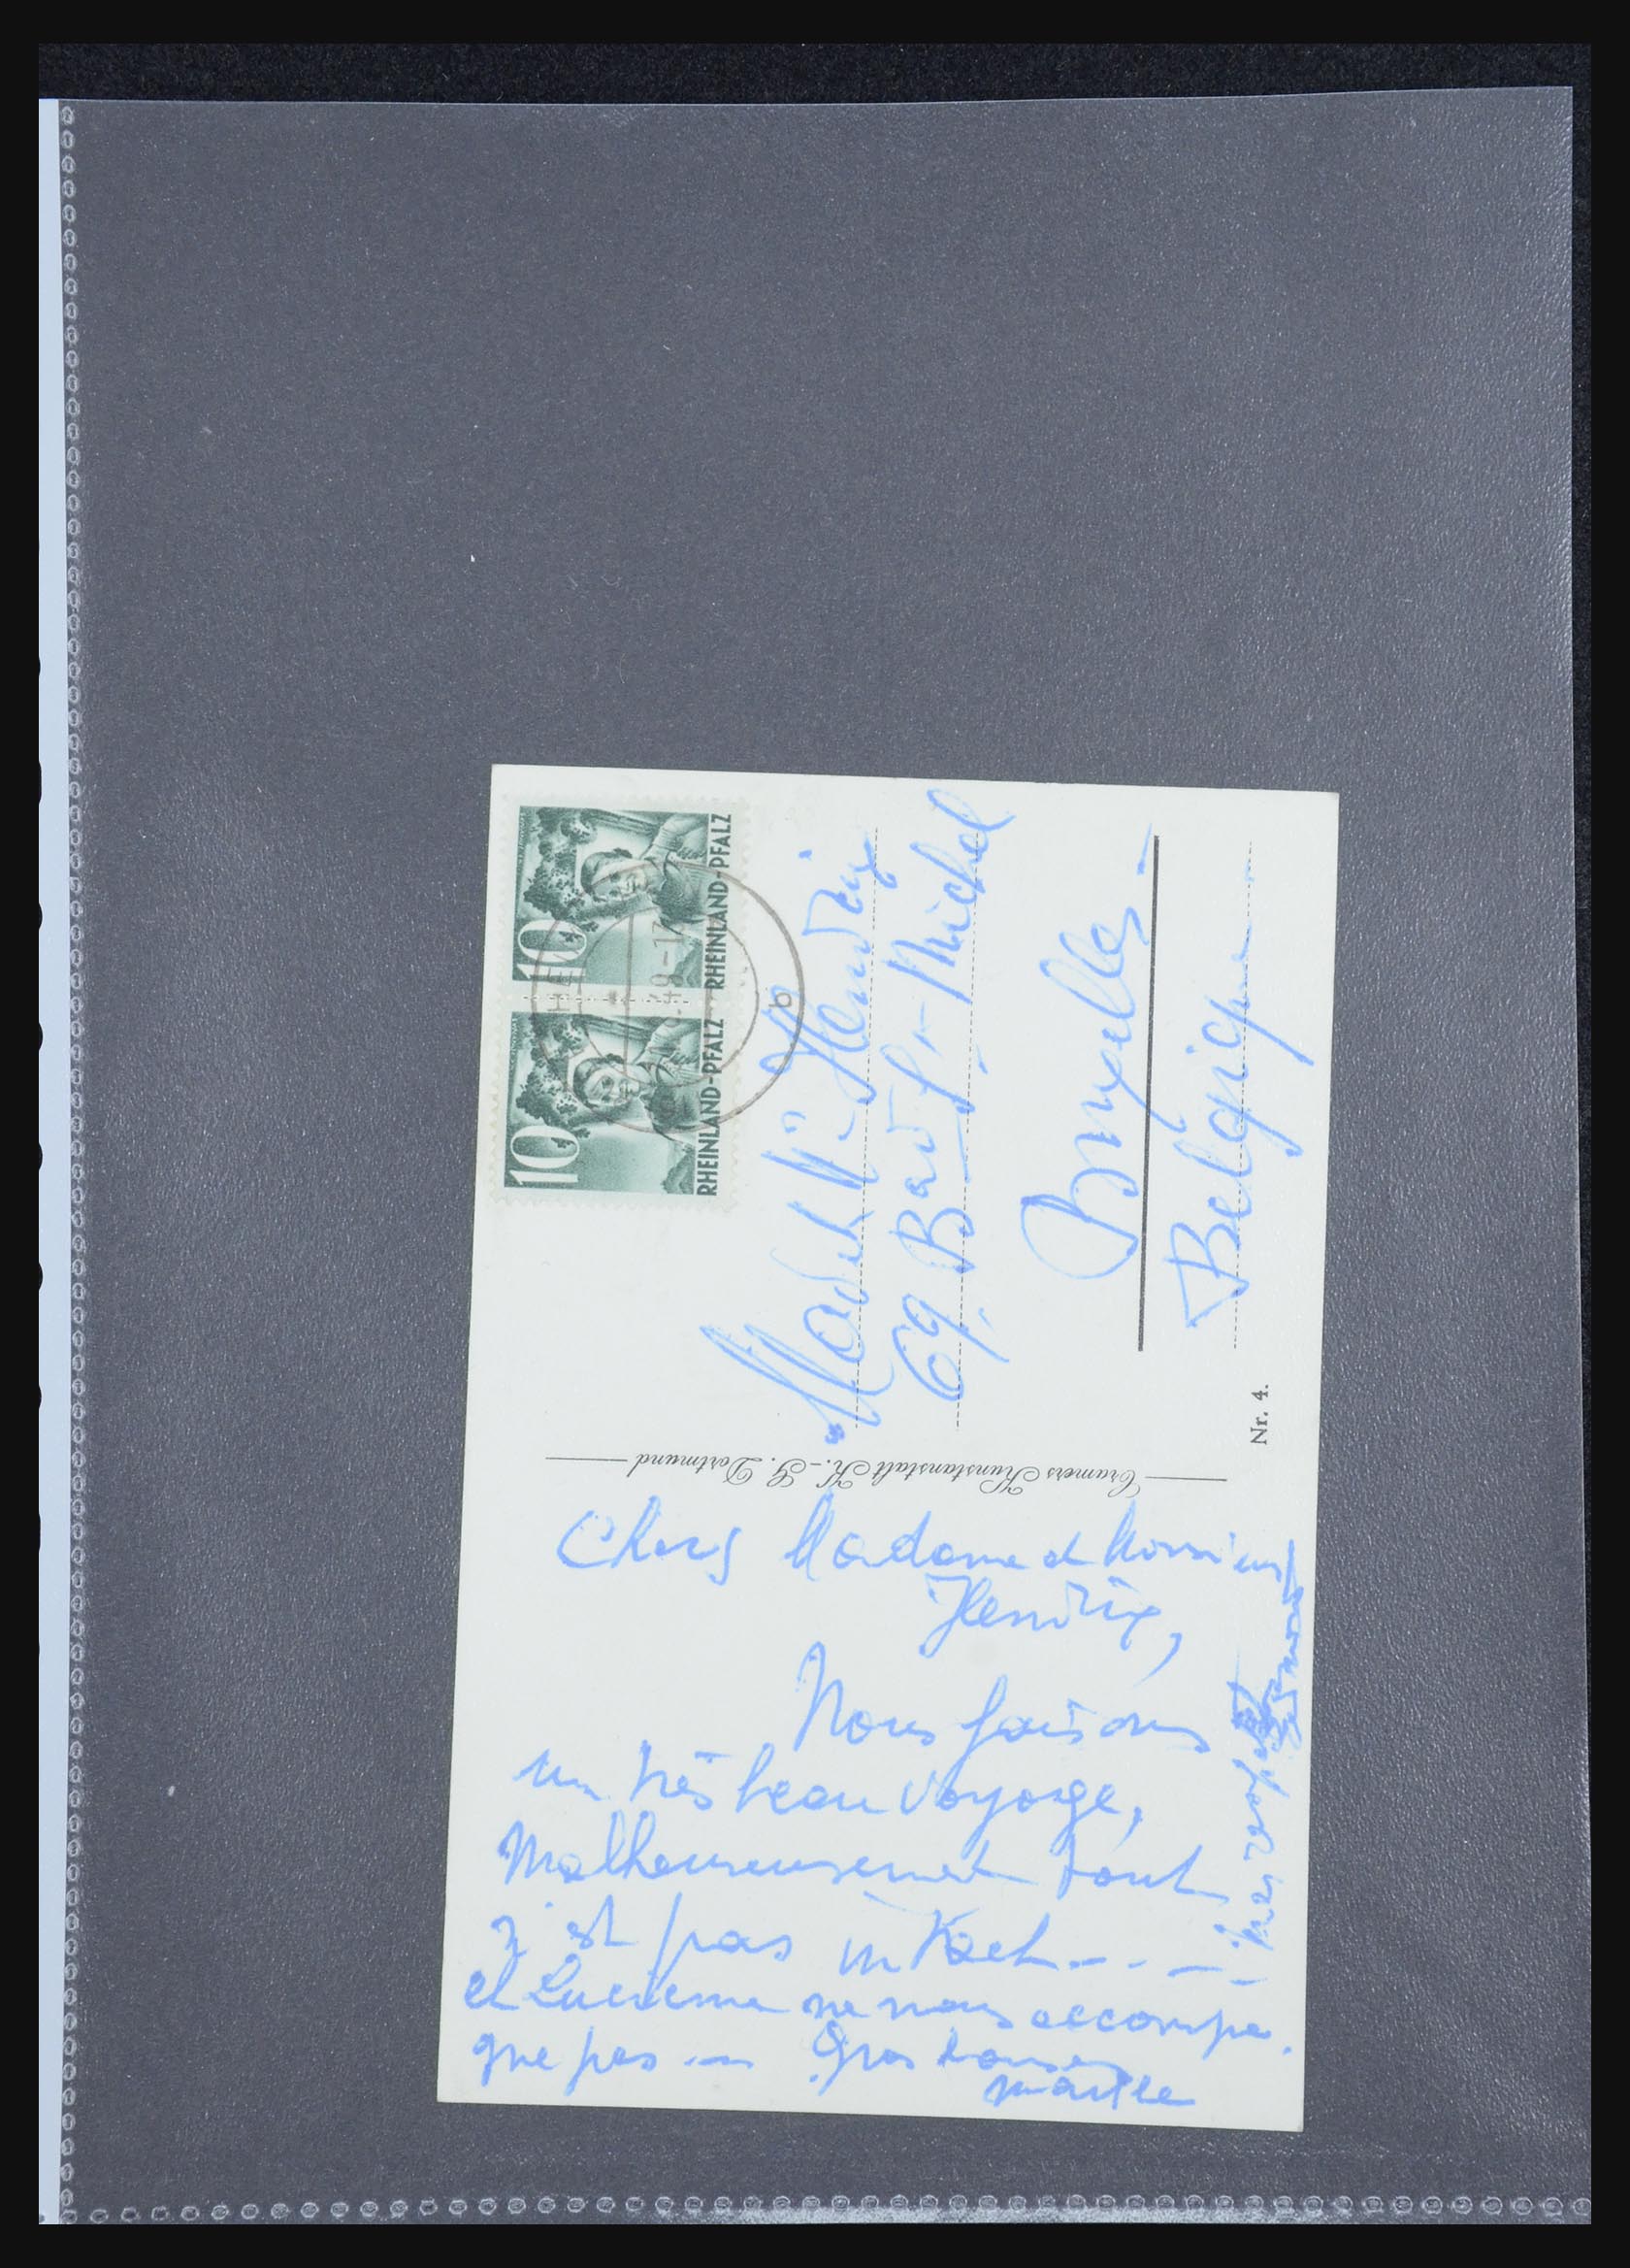 10
RHEINLAND-PFALZ
10
RHEINLAND-PFALZ
49-17
b
Mad. et Mr. Hendrix
69, Bard St-Michel
Bruxelles
Belgique
Nr. 4.
Cramers Kunstanstalt K.-G. Dortmund
Chers Madame et Monsieur
Hendrix,
Nous faisons
un très beau voyage,
Malheureusement tout
n'est pas in Koch - - - -
et Lucienne ne nous accompa
gne pas - Gros baisers